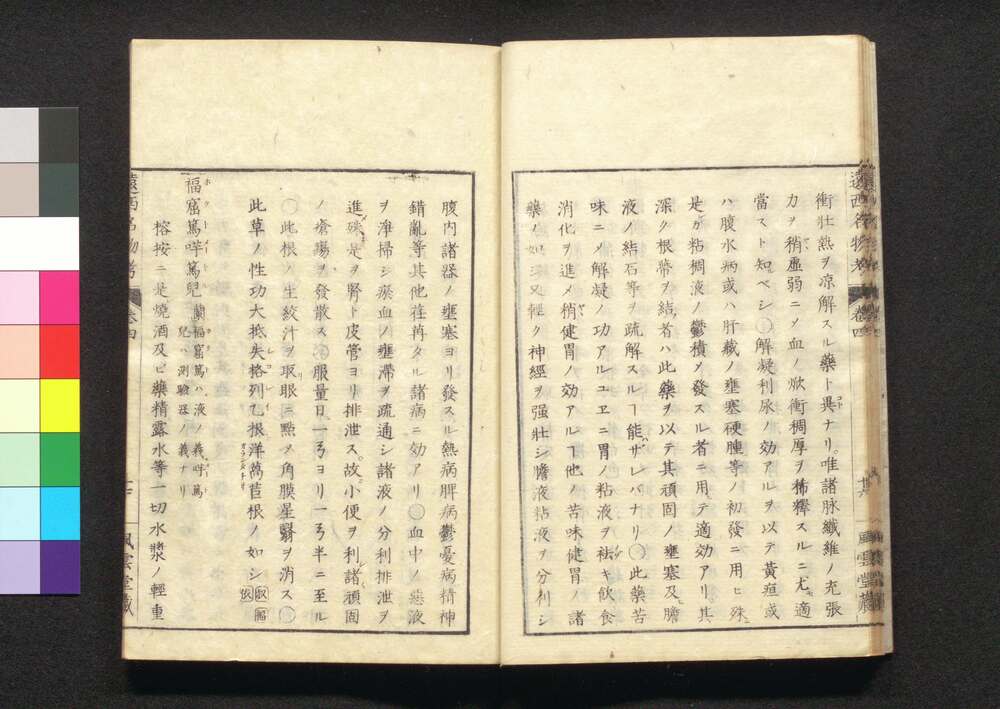 遠西名物考 卷四
風雲堂藏
衝壮熱ヲ凉解スル藥ト異ナリ。唯諸脉纖維ノ充張
カヲ稍虛弱ニメ血ノ焮衝稠厚ヲ稀釋スルニ尤適
當スト知ベシ〇解凝利尿ノ効アルヲ以テ黃疸或
ハ腹水病或ハ肝臟ノ壅塞硬腫等ノ初發ニ用ヒ殊
是ガ粘稠液ノ鬱積メ發スル者ニ用テ適効アリ其
深ク根蒂ヲ結者ハ此藥ヲ以テ其頑固ノ壅塞及膽
液ノ結石等ヲ疏解スルヿ能ザレバナリ〇此藥苦
味ニメ解凝ノ功アルユヱニ胃ノ粘液ヲ袪キ飮食
消化ヲ進メ稍健胃ノ効アルヿ他ノ苦味健胃ノ諸
藥ノ如シ又輕ク神經ヲ强壯シ膽液粘液ヲ分利シ
腹內諸器ノ壅塞ヨリ發スル熱病脾病鬱憂病精神
錯亂等其他荏苒タル諸病ニ効アリ〇血中ノ惡液
ヲ淨掃シ瘀血ノ壅滯ヲ疏通シ諸液ノ分利排泄ヲ
進殊是ヲ腎ト皮管ヨリ排泄ス。故小便ヲ利諸頑固
ノ瘡瘍ヲ發散ス〇服量日一弓ヨリ一弓半ニ至ル
〇此根ノ生絞汁ヲ取眼ニ點メ角膜星翳ヲ消ス〇
此草ノ性功大抵失格列乙根洋萵苣根ノ如シ
福窟篤哶篤兒 蘭福窟篤ハ液ノ義哶篤
兒ハ測驗器ノ義ナリ
榕按ニ是燒酒及ビ藥精露水等一切水漿ノ輕重
遠西名物考 卷四
風雲堂藏